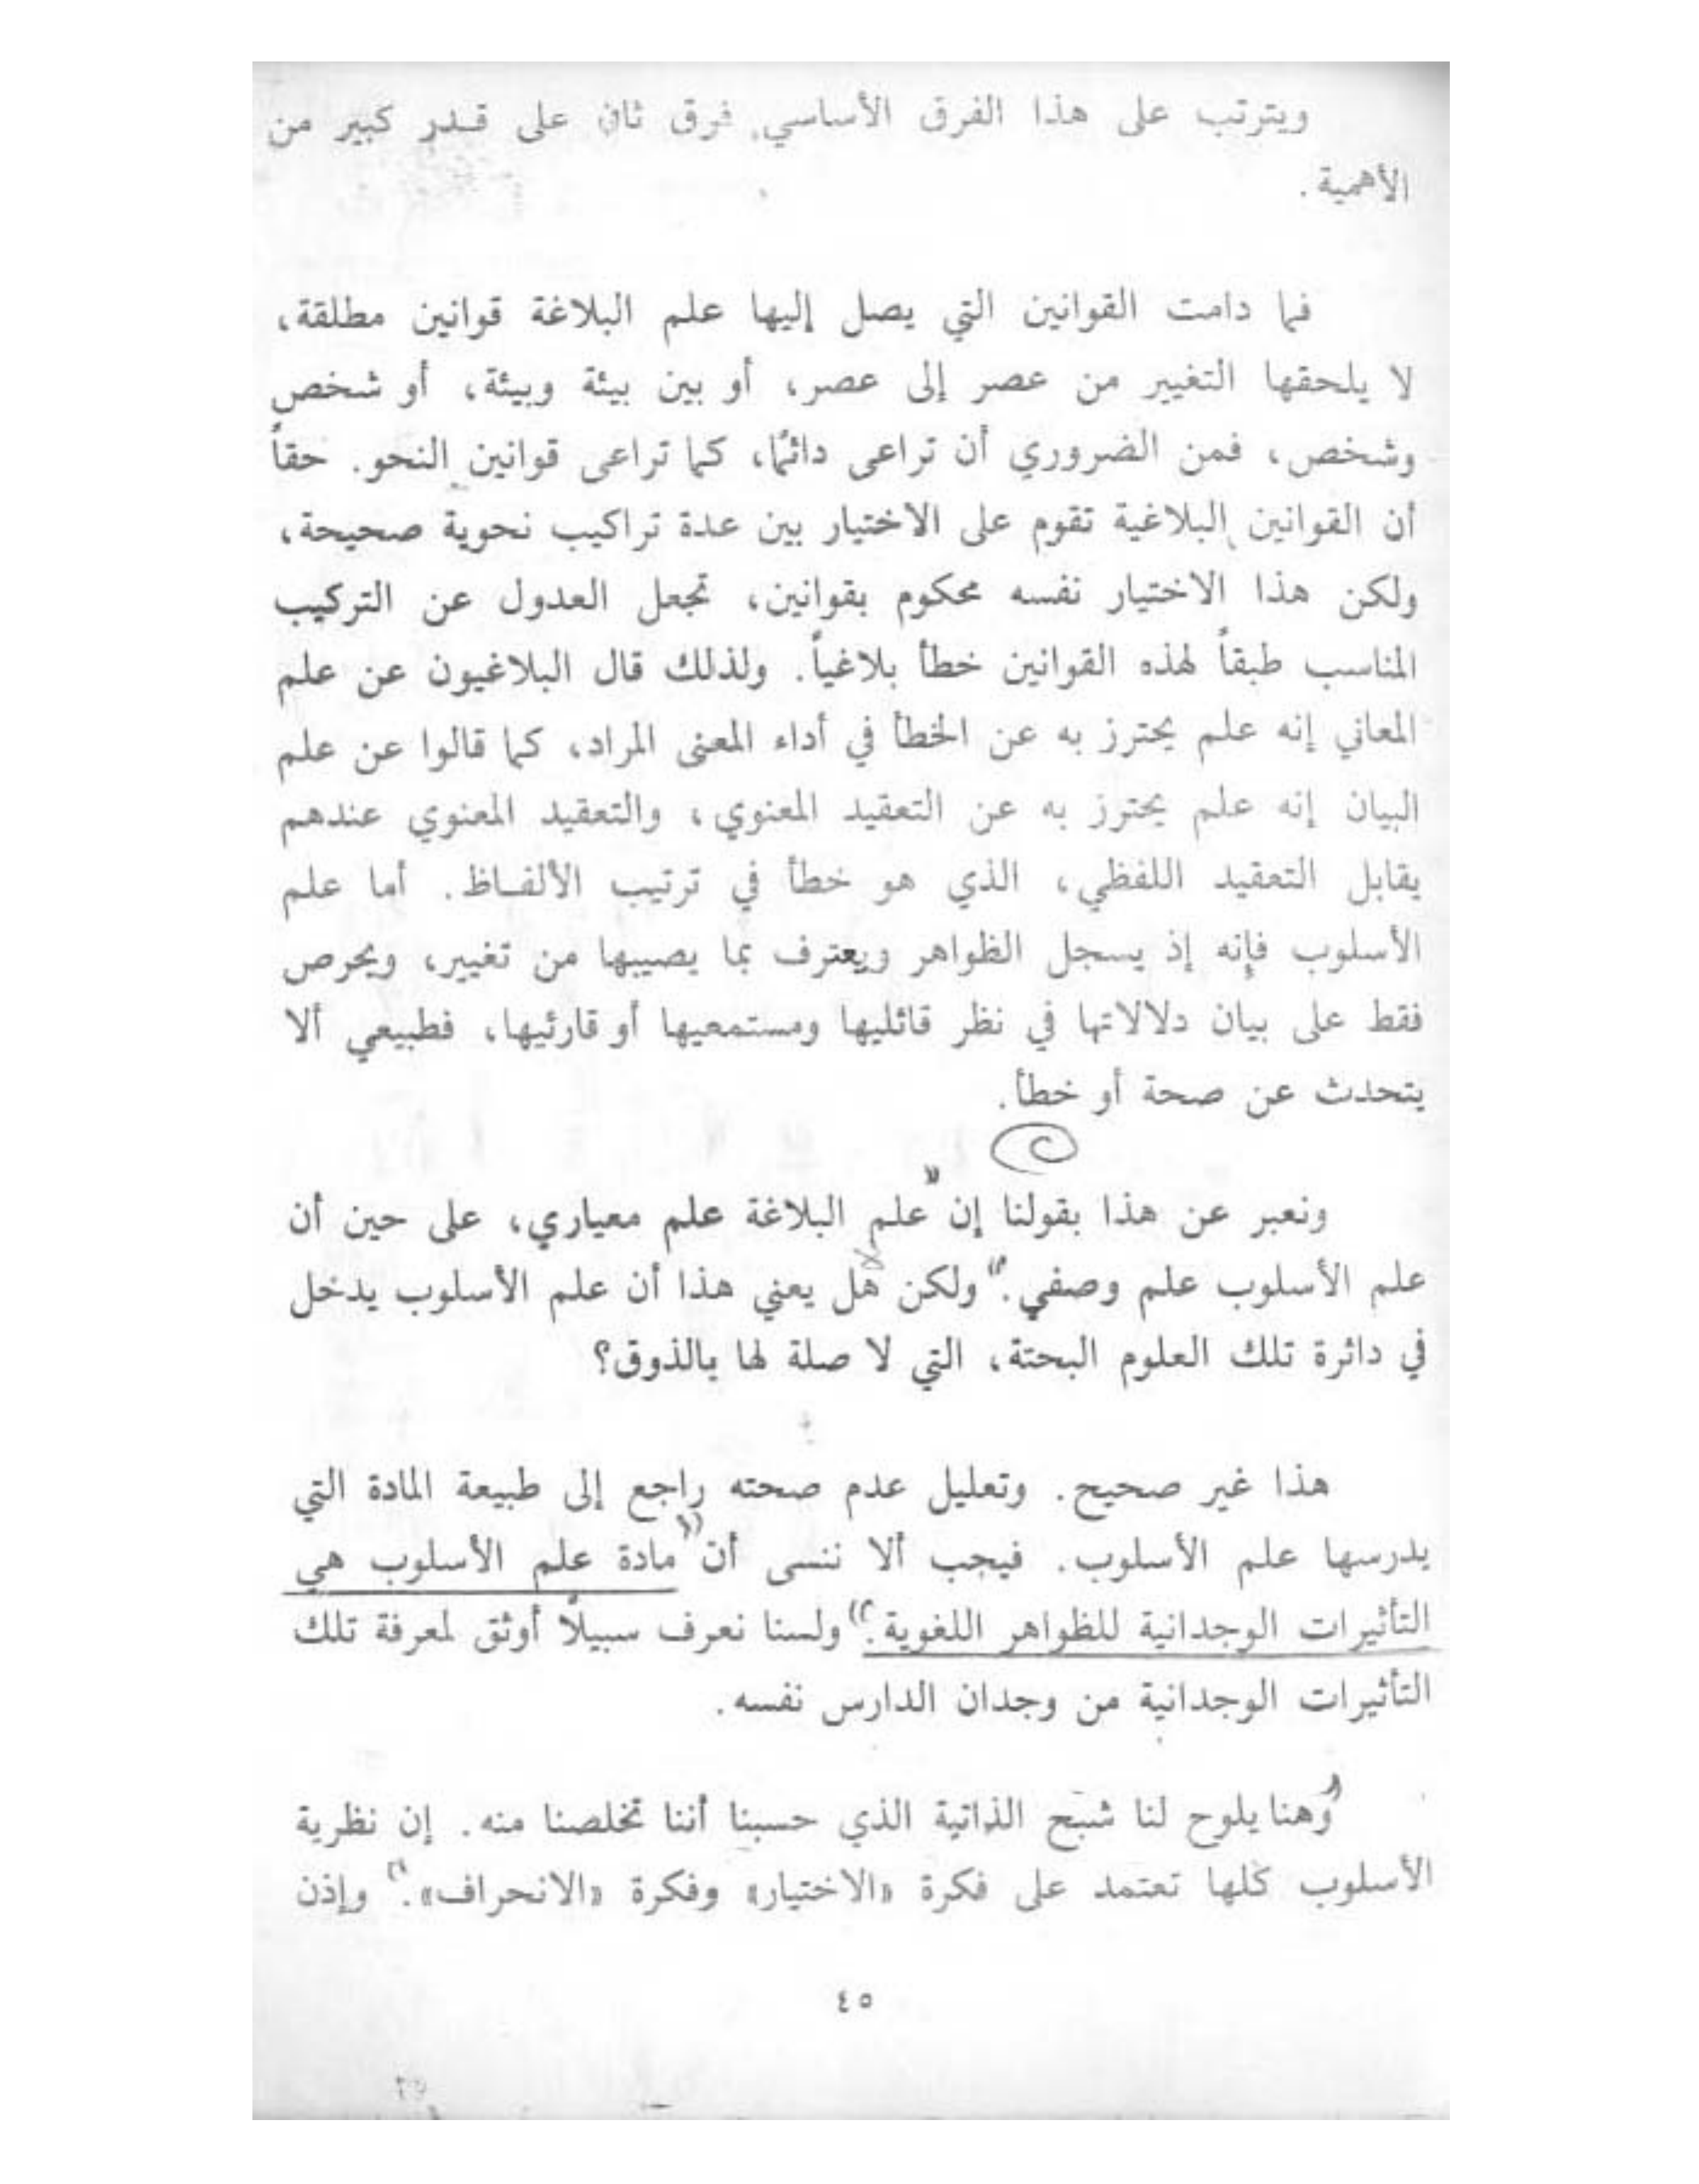 ويترتب على هذا الفرق الأساسي، فرق ثان على قدر كبير من
الأهمية.
فما دامت القوانين التي يصل إليها علم البلاغة قوانين مطلقة،
لا يلحقها التغيير من عصر إلى عصر، أو بين بيئة وبيئة، أو شخص
وشخص، فمن الضروري أن تراعى دائمًا، كما تراعى قوانين النحو. حقاً
أن القوانين البلاغية تقوم على الاختيار بين عدة تراكيب نحوية صحيحة،
ولكن هذا الاختيار نفسه محكوم بقوانين، تجعل العدول عن التركيب
المناسب طبقاً لهذه القوانين خطأ بلاغياً. ولذلك قال البلاغيون عن علم
المعاني إنه علم يحترز به عن الخطأ في أداء المعنى المراد، كما قالوا عن علم
البيان إنه علم يحترز به عن التعقيد المعنوي، والتعقيد المعنوي عندهم
يقابل التعقيد اللفظي، الذي هو خطأ في ترتيب الألفاظ. أما علم
الأسلوب فإنه إذ يسجل الظواهر ويعترف بما يصيبها من تغيير، ويحرص
فقط على بيان دلالاتها في نظر قائليها ومستمعيها أو قارئيها، فطبيعي ألا
يتحدث عن صحة أو خطأ.
ونعبر عن هذا بقولنا إن "علم البلاغة علم معياري، على حين أن
علم الأسلوب علم وصفي." ولكن هل يعني هذا أن علم الأسلوب يدخل
في دائرة تلك العلوم البحتة، التي لا صلة لها بالذوق؟
هذا غير صحيح. وتعليل عدم صحته راجع إلى طبيعة المادة التي
يدرسها علم الأسلوب. فيجب ألا ننسى أن "مادة علم الأسلوب هي
التأثيرات الوجدانية للظواهر اللغوية." ولسنا نعرف سبيلًا أوثق لمعرفة تلك
التأثيرات الوجدانية من وجدان الدارس نفسه.
"وهنا يلوح لنا شبح الذاتية الذي حسبنا أننا تخلصنا منه. إن نظرية
الأسلوب كلها تعتمد على فكرة «الاختيار» وفكرة «الانحراف»." وإذن
٤٥